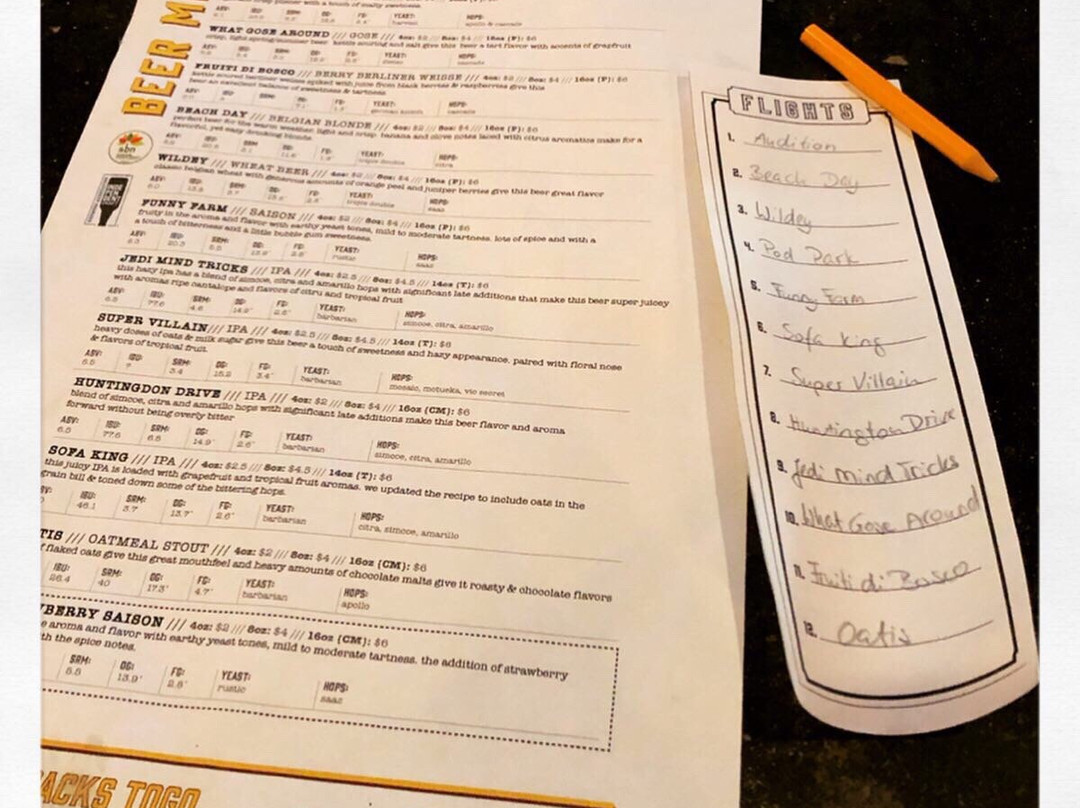 BEER M
with a touch of malty sweetness.
ABV: IBU: SRM: OG: FG: YEAST: HOPS:
apollo & cascade
WHAT GOSE AROUND /// GOSE /// 4oz: $2 /// 8oz: $4 /// 16oz (P): $6
crisp, light spring/summer beer. kettle souring and salt give this beer a tart flavor with accents of grapfruit
ABV: IBU: SRM: OG: FG: YEAST: HOPS:
FRUITI DI BOSCO /// BERRY BERLINER WEISSE /// 4oz: $2 /// 8oz: $4 /// 16oz (P): $6
kettle soured berliner weisse spiked with juice from black berries & raspberries give this
beer an excellent balance of sweetness & tartness
ABV: IBU: SRM: OG: FG: YEAST: HOPS:
BEACH DAY /// BELGIAN BLONDE /// 4oz: $2 /// 8oz: $4 /// 16oz (P): $6
perfect beer for the warm weather. light and crisp. banana and clove notes laced with citrus aromatics make for a
flavorful, yet easy drinking blonde.
ABV: IBU: SRM: OG: FG: YEAST: HOPS:
citra
abn
WILDEY /// WHEAT BEER /// 4oz: $2 /// 8oz: $4 /// 16oz (P): $6
classic belgian wheat with generous amounts of orange peel and juniper berries give this beer great flavor
ABV: IBU: SRM: OG: FG: YEAST: HOPS:
saaz
INDEPENDENT
FUNNY FARM /// SAISON /// 4oz: $2 /// 8oz: $4 /// 16oz (P): $6
fruity in the aroma and flavor with earthy yeast tones, mild to moderate tartness. lots of spice and with a
a touch of bitterness and a little bubble gum sweetness.
ABV: IBU: SRM: OG: FG: YEAST: HOPS:
rustic saaz
JEDI MIND TRICKS /// IPA /// 4oz: $2.5 /// 8oz: $4.5 /// 14oz (T): $6
this hazy ipa has a blend of simcoe, citra and amarillo hops with significant late additions that make this beer super juicey
with aromas ripe cantalope and flavors of citru and tropical fruit
ABV: IBU: SRM: OG: FG: YEAST: HOPS:
6.5 77.6 4.6 14.9° 2.6° barbarian simcoe, citra, amarillo
SUPER VILLAIN /// IPA /// 4oz: $2.5 /// 8oz: $4.5 /// 14oz (T): $6
heavy doses of oats & milk sugar give this beer a touch of sweetness and hazy appearance. paired with floral nose
& flavors of tropical fruit.
ABV: IBU: SRM: OG: FG: YEAST: HOPS:
3.4 3.4° barbarian mosaic, motueka, vic secret
HUNTINGDON DRIVE /// IPA /// 4oz: $2 /// 8oz: $4 /// 16oz (CM): $6
blend of simcoe, citra and amarillo hops with significant late additions make this beer flavor and aroma
forward without being overly bitter
ABV: IBU: SRM: OG: FG: YEAST: HOPS:
6.5 77.6 6.8 14.9° 2.6° barbarian simcoe, citra, amarillo
SOFA KING /// IPA /// 4oz: $2.5 /// 8oz: $4.5 /// 14oz (T): $6
this juicy IPA is loaded with grapefruit and tropical fruit aromas. we updated the recipe to include oats in the
grain bill & toned down some of the bittering hops.
IBU: SRM: OG: FG: YEAST: HOPS:
46.1 3.7 13.7° 2.6° barbarian citra, simcoe, amarillo
TIS /// OATMEAL STOUT /// 4oz: $2 /// 8oz: $4 /// 16oz (CM): $6
flaked oats give this great mouthfeel and heavy amounts of chocolate malts give it roasty & chocolate flavors
IBU: SRM: OG: FG: YEAST: HOPS:
26.4 40 17.3° 4.7° barbarian apollo
BERRY SAISON /// 4oz: $2 /// 8oz: $4 /// 16oz (CM): $6
e aroma and flavor with earthy yeast tones, mild to moderate tartness. the addition of strawberry
th the spice notes.
SRM: OG: FG: YEAST: HOPS:
5.5 13.9° 2.8° rustic saaz
ACKS TOGO
FLIGHTS
1. Audition
2. Beach Day
3. Wildey
4. Pod Park
5. Funny Farm
6. Sofa King
7. Super Villain
8. Huntington Drive
9. Jedi Mind Tricks
10. What Gose Around
11. Fruiti di Bosco
12. Oatis